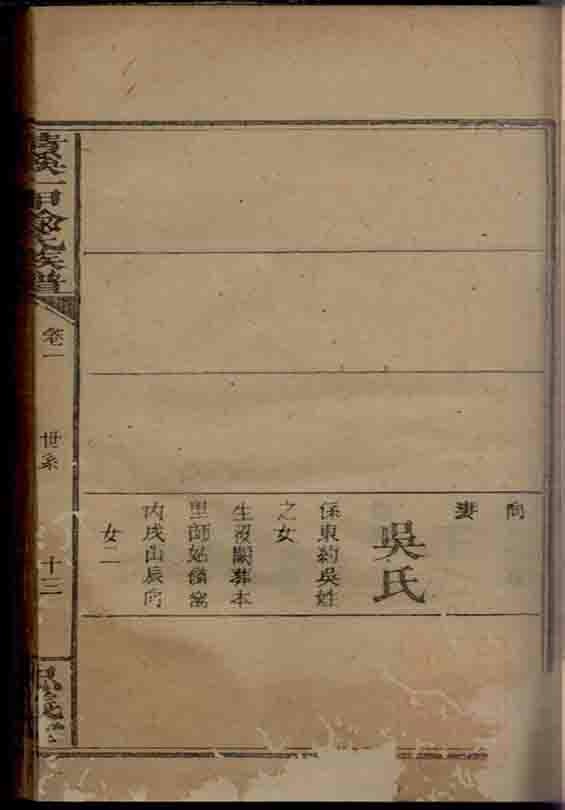 向
妻
吳氏
係東約吳姓
之女
生歿闕葬本
里師姑嶺窩
內戌山辰向
女二
一甲俞氏族譜
卷一
世系
十三